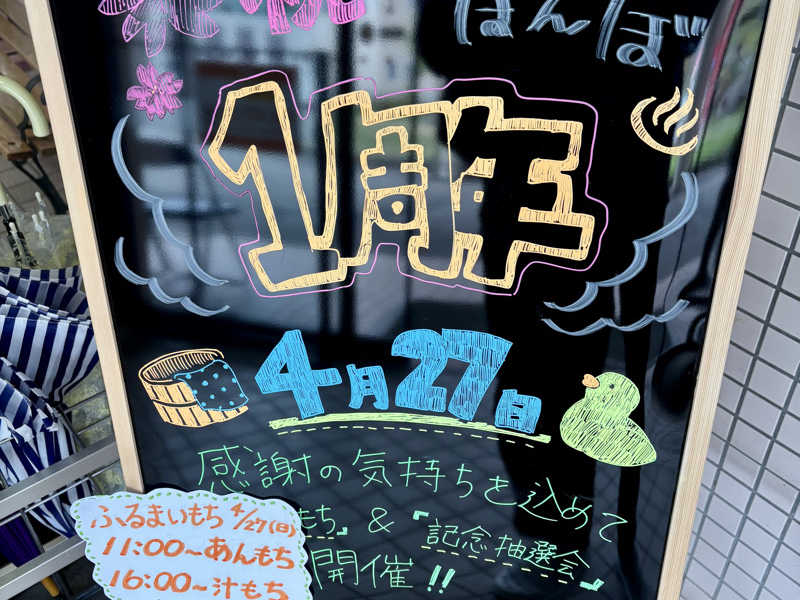 はんぼ
1周年
4月27日
感謝の気持ちを込めて
もち』&『記念抽選会』
開催!!
ふるまいもち 4/27(日)
11:00〜あんもち
16:00〜汁もち